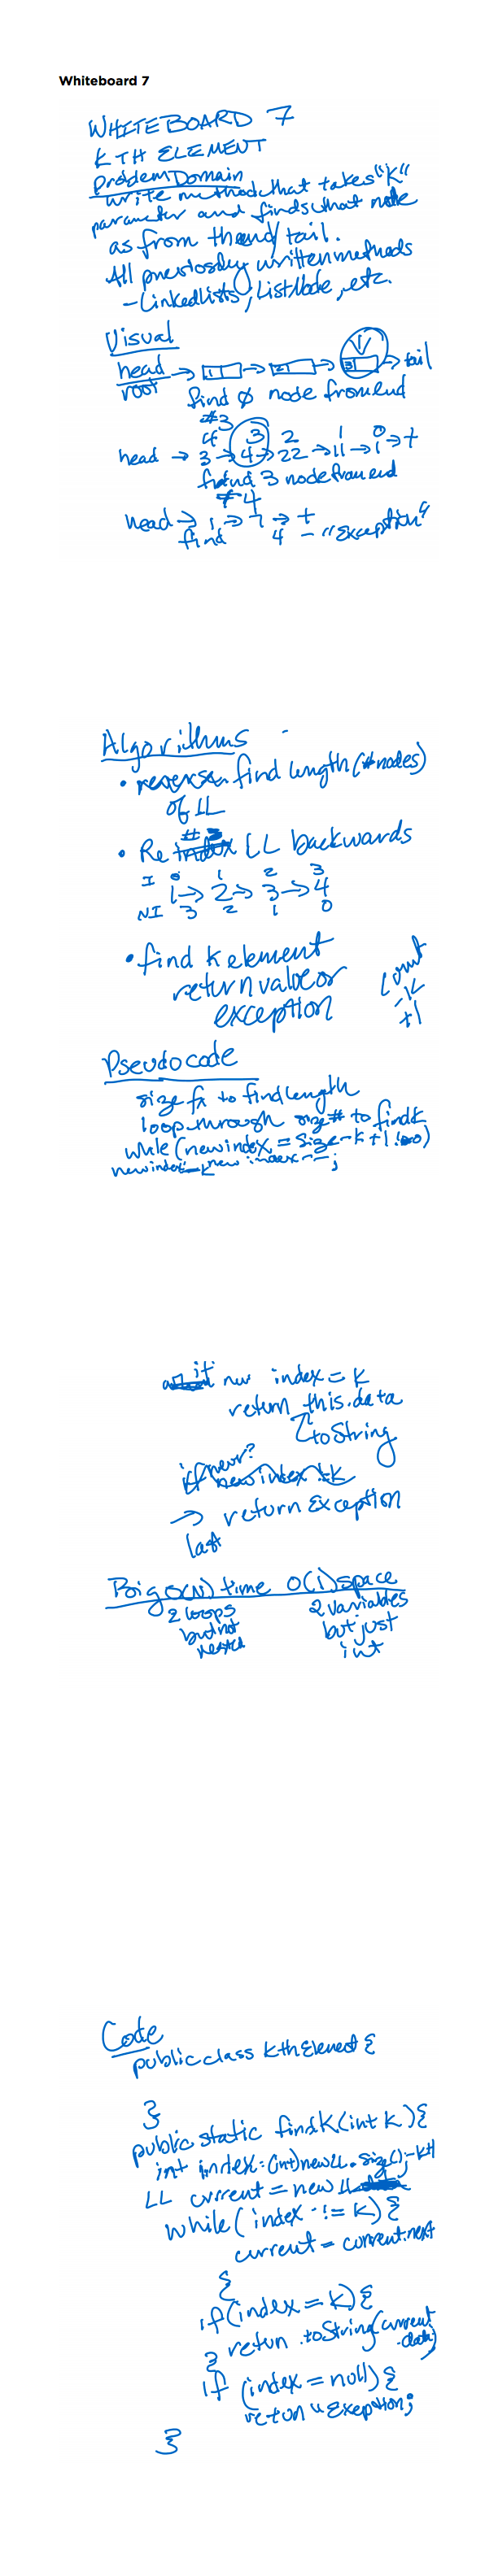 Whiteboard 7
WHITEBOARD 7
KTH ELEMENT
Problem Domain
write method that takes "K"
parameter and finds that node
as from the end/tail.
All previously written methods
- Linked Lists, ListNode, etc.
Visual
head → 1 → 2 → 3 → tail
root
find 0 node from end
#3
4 3 2 1 0
head → 3 → 4 → 22 → 11 → 1 → t
find 3 node from end
#4
head → 1 → 7 → t
find 4 - "Exception"
Algorithms
• find length (# nodes)
of LL
• Re # LL backwards
I 0 1 2 3
1 → 2 → 3 → 4
NI 3 2 1 0
• find k element
return value or
exception
count
-k
+1
Pseudocode
size fx to find length
loop through size # to find k
while (newindex = size - k + 1 != 0)
new index --;
if new index = k
return this.data
toString
if never?
newindex != k
→ return Exception
last
Big O(N) time O(1) space
2 loops
but not
nested
2 variables
but just
int
Code
public class KthElement {
}
public static findK(int k) {
int index = (int) newLL.size() - k+1
LL current = new LL
while (index != k) {
current = current.next
{
if (index = k) {
return .toString(current
.data)
}
if (index = null) {
return "Exeption;
}